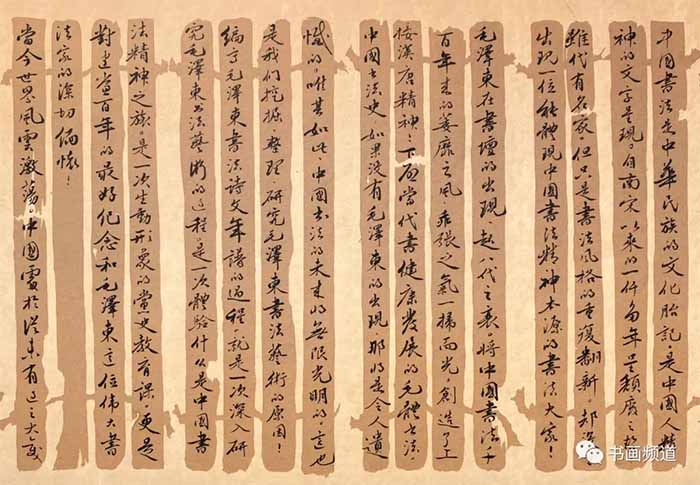 中國書法是中華民族的文化胎記，是中國人精
神的文字呈現。自南宋以來的一仟多年呈頹廢之勢
雖代有名家。但只是書法風格的重復翻新。却沒
出現一位能體現中國書法精神本源的書法大家！
毛澤東在書壇的出現 起八代之衰。將中國書法千
百年來的萎靡之風。乖張之氣一掃而光。創造了上
接漢唐精神。下啟當代書健康發展的毛體書法。
中國書法史如果沒有毛澤東的出現。那將是令人遺
憾的。唯其如此、中國書法的未來將無限光明的。這也
是我們挖掘。整理。研究毛澤東書法藝術的原因！
編寫毛澤東書法詩文年譜的過程就是一次深入研
究毛澤東书法藝術的過程。是一次體驗什么是中國書
法精神之旅。是一次生動形象的黨史教育課。更是
對建黨百年的最好紀念和毛澤東這位偉大書
法家的深切緬懷！
當今世界風雲激蕩。中國處於從未有過之大變
书画频道